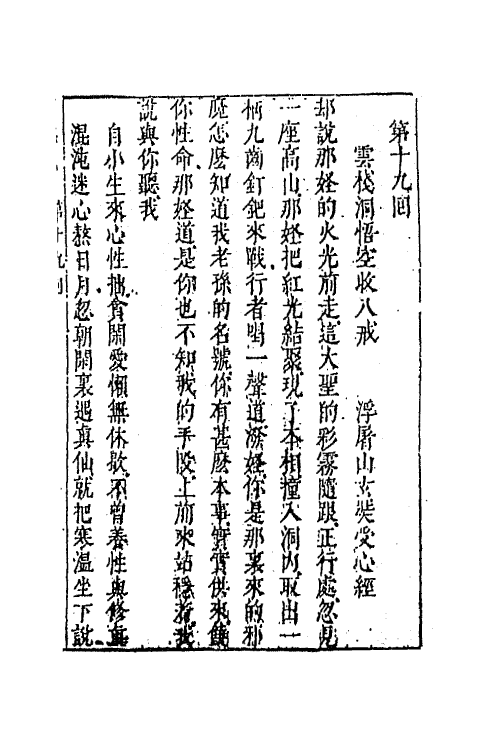 第十九回
雲棧洞悟空收八戒　浮屠山玄奘受心經
却說那怪的火光前走這大聖的彩霧隨跟正行處忽見
一座高山那怪把紅光結聚現了本相撞入洞內取出一
柄九齒釘鈀來戰行者喝一聲道潑怪你是那裏來的邪
魔怎麽知道我老孫的名號你有甚麽本事實實供來饒
你性命那怪道是你也不知我的手段上前來站穩着我
說與你聽我
自小生來心性拙貪閑愛懶無休歇不曾養性與修真
混沌迷心熬日月忽朝閑裏遇真仙就把寒溫坐下說
第十九回